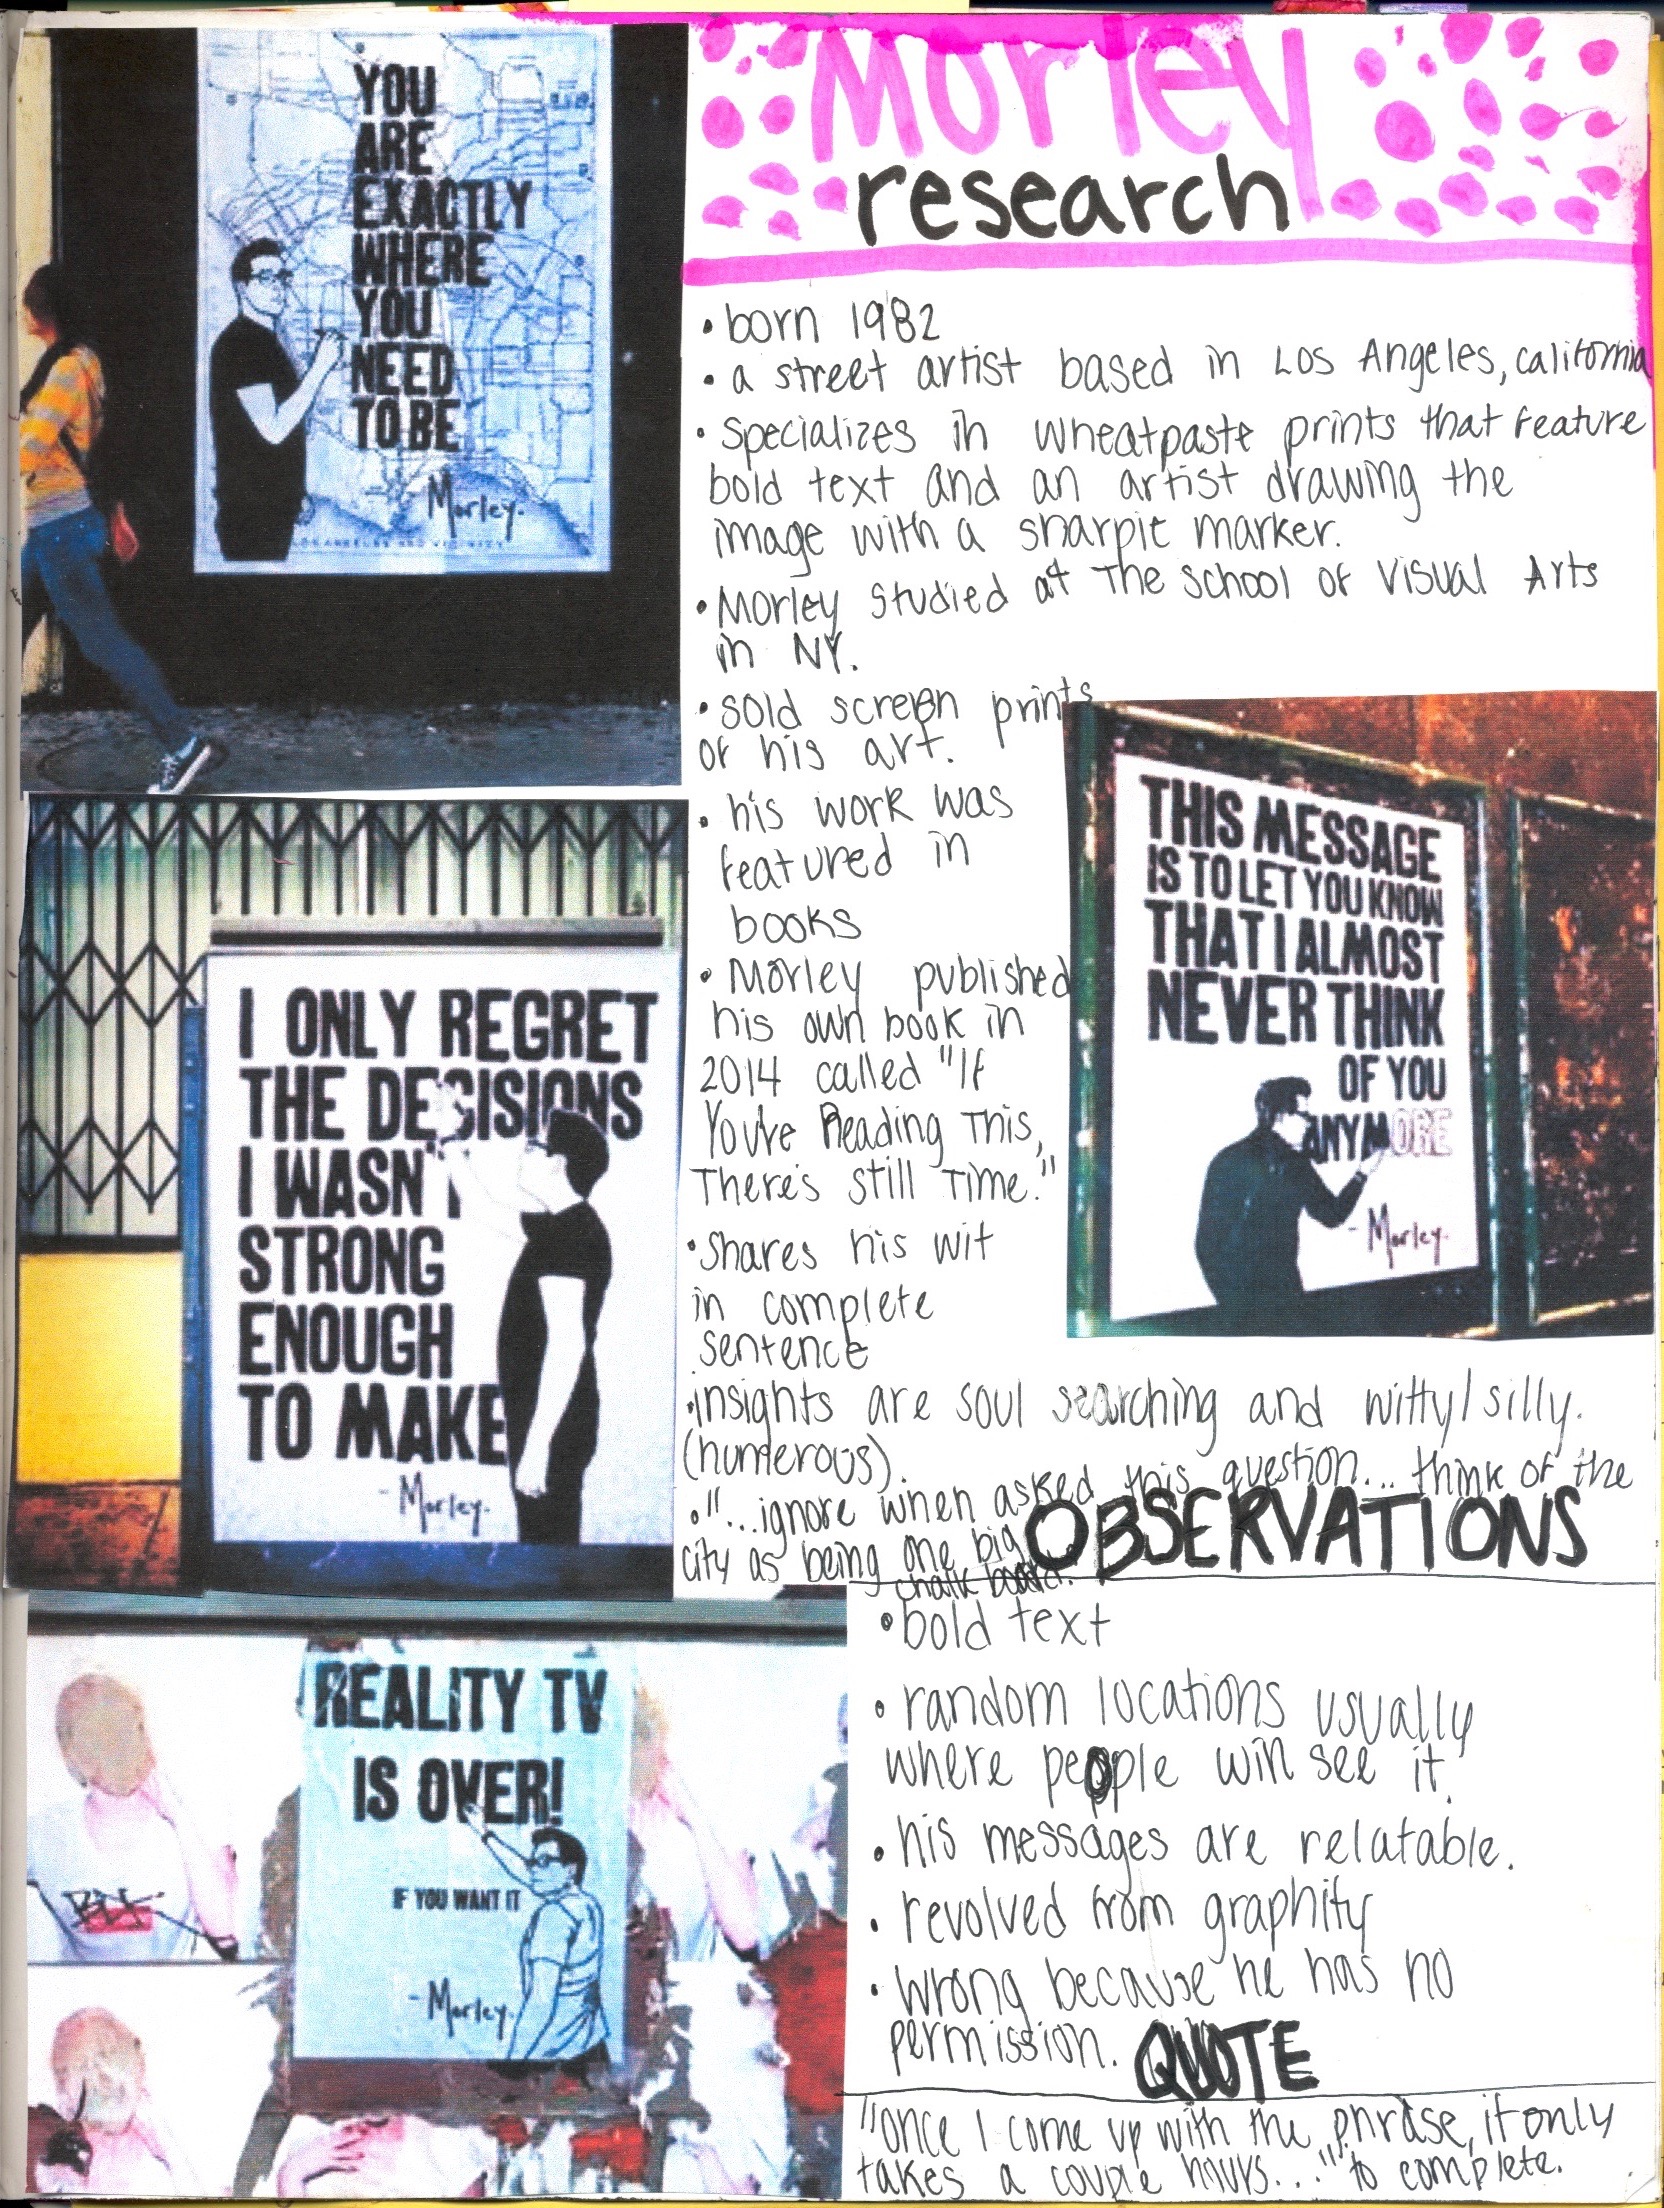 YOU
ARE
EXACTLY
WHERE
YOU
NEED
TO BE
Morley.
Morley
research
• born 1982
• a street artist based in Los Angeles, california
• specializes in wheatpaste prints that feature
bold text and an artist drawing the
image with a sharpie marker.
• Morley studied at The School of Visual Arts
in NY.
• sold screen prints
of his art.
• his work was
featured in
books
• Morley published
his own book in
2014 called "If
You're Reading This,
There's still Time."
• shares his wit
in complete
sentence
• insights are soul searching and witty/silly.
(humerous).
• "...ignore when asked this question... think of the
city as being one big
chalk board.
I ONLY REGRET
THE DECISIONS
I WASN'T
STRONG
ENOUGH
TO MAKE
- Morley.
THIS MESSAGE
IS TO LET YOU KNOW
THAT I ALMOST
NEVER THINK
OF YOU
ANYMORE
- Morley.
REALITY TV
IS OVER!
IF YOU WANT IT
- Morley.
OBSERVATIONS
• bold text
• random locations usually
where people will see it.
• his messages are relatable.
• revolved from graphity
• wrong because he has no
permission.
QUOTE
"once I come up with the phrase, it only
takes a couple hours..." to complete.